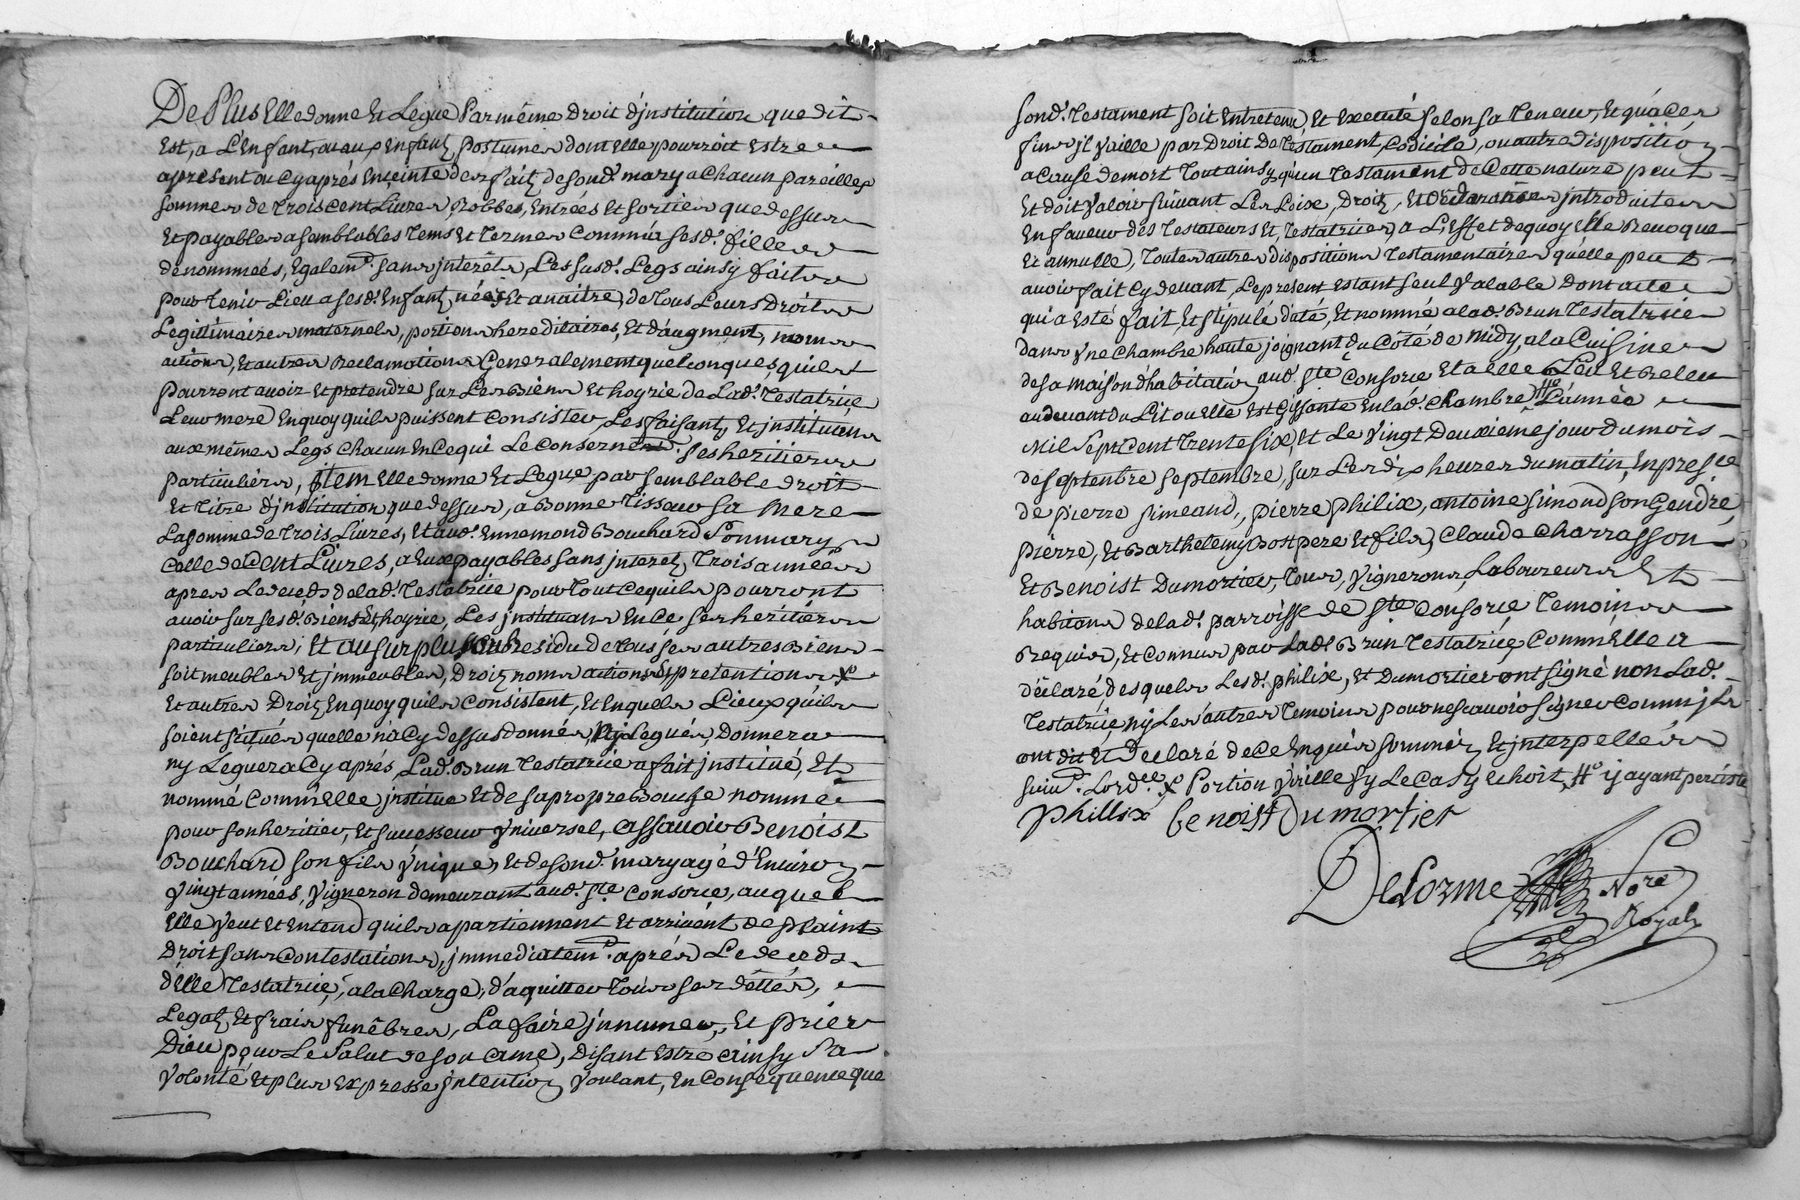 De Plus Elle donne Et Legue Par même Droit d'jnstitution que dit
Est, a L'Enfant, ou aux Enfantz Postumes dont elle pourroit Estre
apresent ou Cyaprés Enceinte des faitz de sond. mary a Chacun pareilles
sommes de Trois Cent Livres Robbes, Entrées Et sorties que dessus
Et payables a semblables Tems Et Termes Comm'a ses d. filles
denommeés, Egalem.t sans jnterêts, Les susd. Legs ainsy faits
pour Tenir Lieu a ses d. Enfantz néés Et a naitre, de Tous Leurs Droits
Legittimaires maternels, portions hereditaires, Et d'augment, noms
actions, Et autres Reclamations Generalement quelconques qu'ils
Pourront avoir Et pretendre sur Les Biens Et hoyrie de Lad. Testatrice
Leur mere En quoy quils puissent Consister, Les faisant, Et jnstituans
aux mêmes Legs Chacun En Ce qui Le Conserne, ses heritiers
particuliers, jtem Elle donne Et Legue par semblable droit
Et Titre d'jnstitution que dessus, a Bonne Tissaur sa mere
La somme de Trois Livres, Et aud. Ennemond Bouchard Son mary
Celle de Cent Livres, a Eux payables sans jnterez, Trois années
apres Le deceds de lad. Testatrice pour Tout Ce quils pourront
avoir sur ses d. Biens Et hoyrie, Les jnstituans En Ce ses heritiers
particuliers, Et au surplus Residu de Tous ses autres Biens
soit meubles Et jmmeubles, Droitz noms actions Et pretentions X
Et autres Droitz En quoy quils Consistent, Et En quels Lieux quils
soient situés quelle n'a Cy dessus donnés, Ny Legués, Donnera
ny Leguera Cy aprés, Lad. Brun Testatrice a fait jnstitué, Et
nommé Comm'Elle jnstitue Et de sa propre Bouche nomme
pour son heritier, Et successeur Vniversel, assavoir Benoist
Bouchard son fils Vnique, Et de sond. mary agé d'Environ
Vingt années, Vigneron demeurant aud. Ste Consorce, auquel
Elle Veut Et Entend quils apartiennent Et arrivent de Plaint
Droit sans Contestations, jmmediatem.t aprés Le deceds
d'Elle Testatrice, a la Charge, d'aquitter Tous ses dêttes,
Legatz Et frais funêbres, La faire jnnumer, Et Prier
Dieu pour Le Salut de son ame, Disant Estre ainsy Sa
Volonté Et plus Expresse jntention Voulant, En Consequence que
sond. Testament soit Entretenu Et Executé selon sa Teneur, Et qu'a Ces
fins jl Vaille par Droit De Testament, Codicile, ou autre disposition
a Cause de mort Tout ainsy qu'un Testament de Cette nature peut
Et doit Valoir suivant Les Loix, Droitz, Et Declarations jntroduites
En faveur des Testateurs Et Testatrices, a L'Effet de quoy Elle Revoque
Et annulle, Toutes autres dispositions Testamentaires qu'elle peut
avoir fait Cy devant, Le present Estant seul Valable Dont acte
qui a Esté fait, Et stipulé daté, Et nommé a lad. Brun Testatrice
dans Vne Chambre haute joignant du Coté de midy, a la Cuisine
de sa maison d'habitation aud. Ste Consorce Et a elle Leu Et Releu
au devant du Lit ou Elle Est Gissante En lad. Chambre #o L'année
Mil Sept Cent Trente six, Et Le Vingt Deuxieme jour du mois
de septembre septembre, sur Les dix heures du matin, En pres.ce
de Pierre simeand, Pierre Philix, antoine simond son Gendre
Pierre, Et Barthelemy Bost pere Et fils, Claude Charrasson
Et Benoist Dumortier, Tous, Vignerons, Laboureurs Et
habitans de lad. parroisse de Ste Consorce Temoins
Requis, Et Connus par Lad. Brun Testatrice, Comm'Elle a
déclaré, desquels Lesd. philix, Et Dumortier ont signé non Lad.
Testatrice, ny Les autres Temoins pour ne scavoir signer Comm'jls
ont dit Et Declaré de Ce Enquis sommés, Et jnterpellés
suiv.t Lord.ce X Portion Virille sy Le Cas y Echoit, #o y ayant perciste
Phillix benoist Dumortier
Delorme Nore
Royal